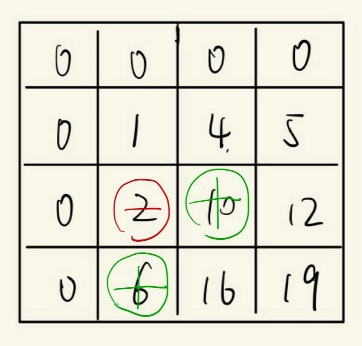 0 0 0 0
0 1 4 5
0 2 10 12
0 6 16 19